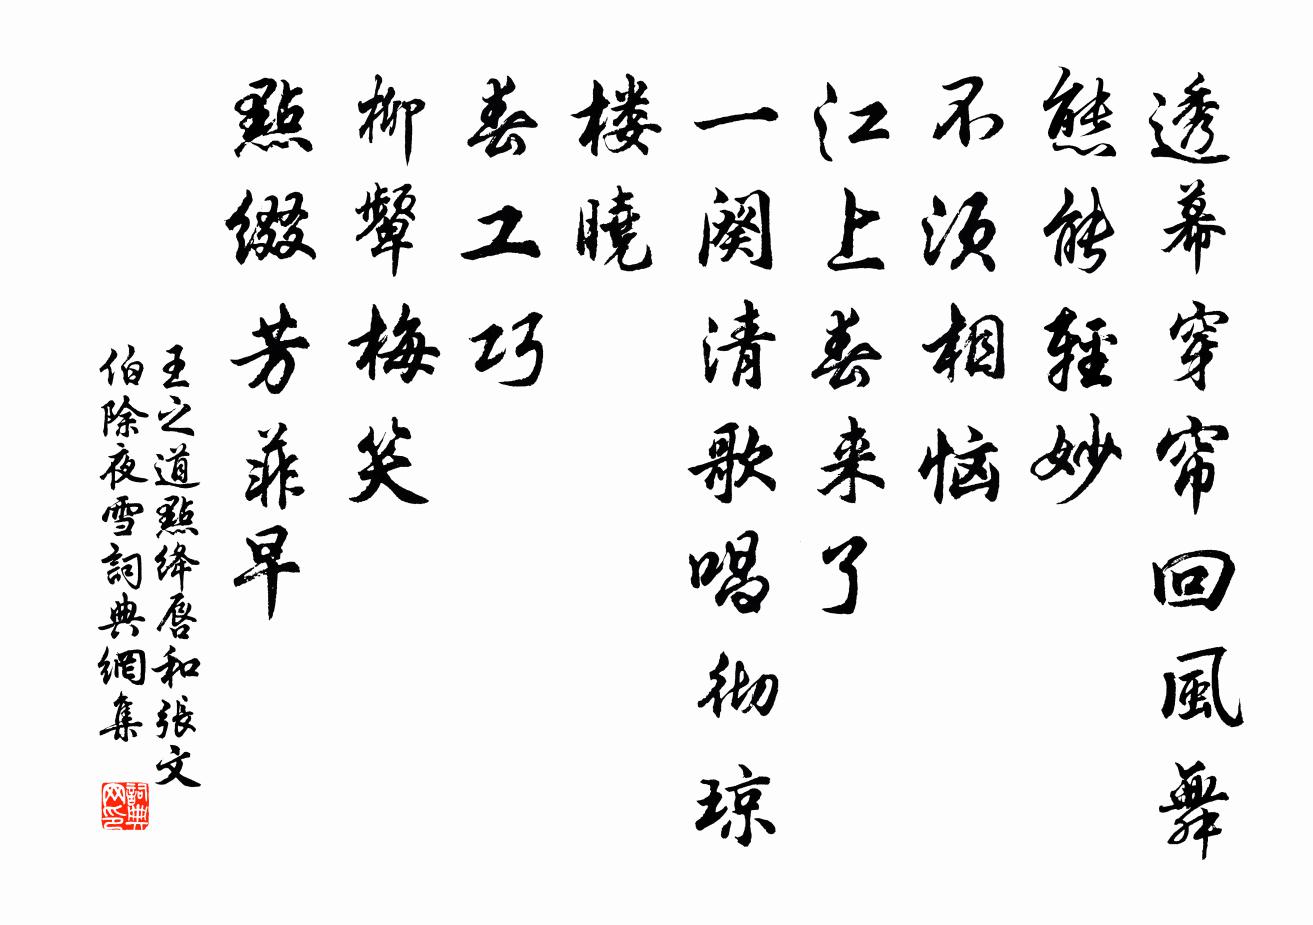 透幕穿帘回風舞
態能輕妙
不須相恼
江上春来了
一闋清歌唱彻琼
楼曉
春工巧
柳顰梅笑
點綴芳菲早
王之道點絳唇和張文
伯除夜雪詞典網集
詞典
网印